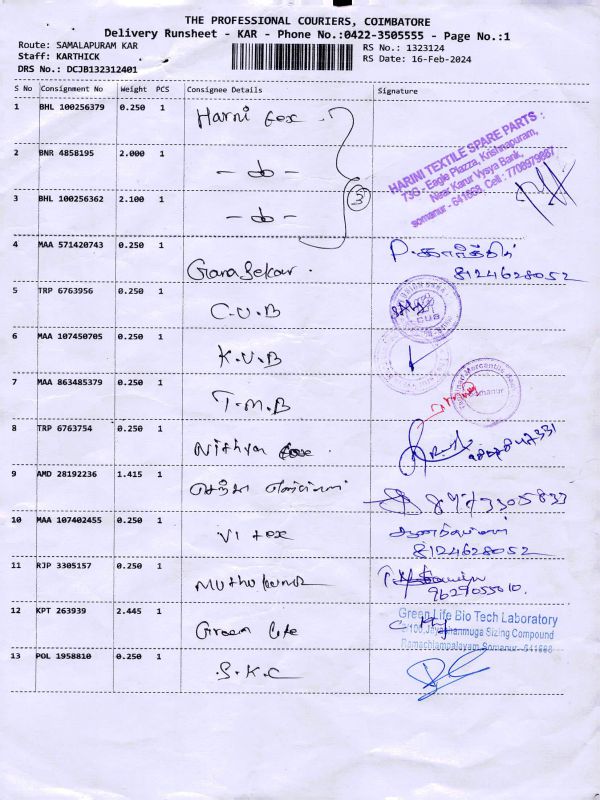 THE PROFESSIONAL COURIERS, COIMBATORE
Delivery Runsheet - KAR - Phone No.:0422-3505555 - Page No.:1
Route: SAMALAPURAM KAR
RS No.: 1323124
Staff: KARTHICK
RS Date: 16-Feb-2024
DRS No.: DCJB132312401
S No Consignment No Weight PCS Consignee Details Signature
1 BHL 100256379 0.250 1 Harni tex
HARINI TEXTILE SPARE PARTS :
73G - Eagle Plazza, Krishnapuram,
Near Karur Vysya Bank,
somanur - 641668. Cell : 7708979887
2 BNR 4858195 2.000 1 - do -
3 BHL 100256362 2.100 1 - do - 3
4 MAA 571420743 0.250 1 Gana Sekar. P. கார்த்திக்
8124628052
5 TRP 6763956 0.250 1 C.U.B
CUB
6 MAA 107450705 0.250 1 K.V.B
7 MAA 863485379 0.250 1 T.M.B
Somanur
8 TRP 6763754 0.250 1 Nithya tex
9 AMD 28192236 1.415 1
10 MAA 107402455 0.250 1 Vi tex
8124628052
11 RJP 3305157 0.250 1 Muthukumar
9629055010.
12 KPT 263939 2.445 1 Green life
Green Life Bio Tech Laboratory
Jayashanmuga Sizing Compound
Ramachiampalayam, Somanur - 641668
13 POL 1958810 0.250 1 S.K.C